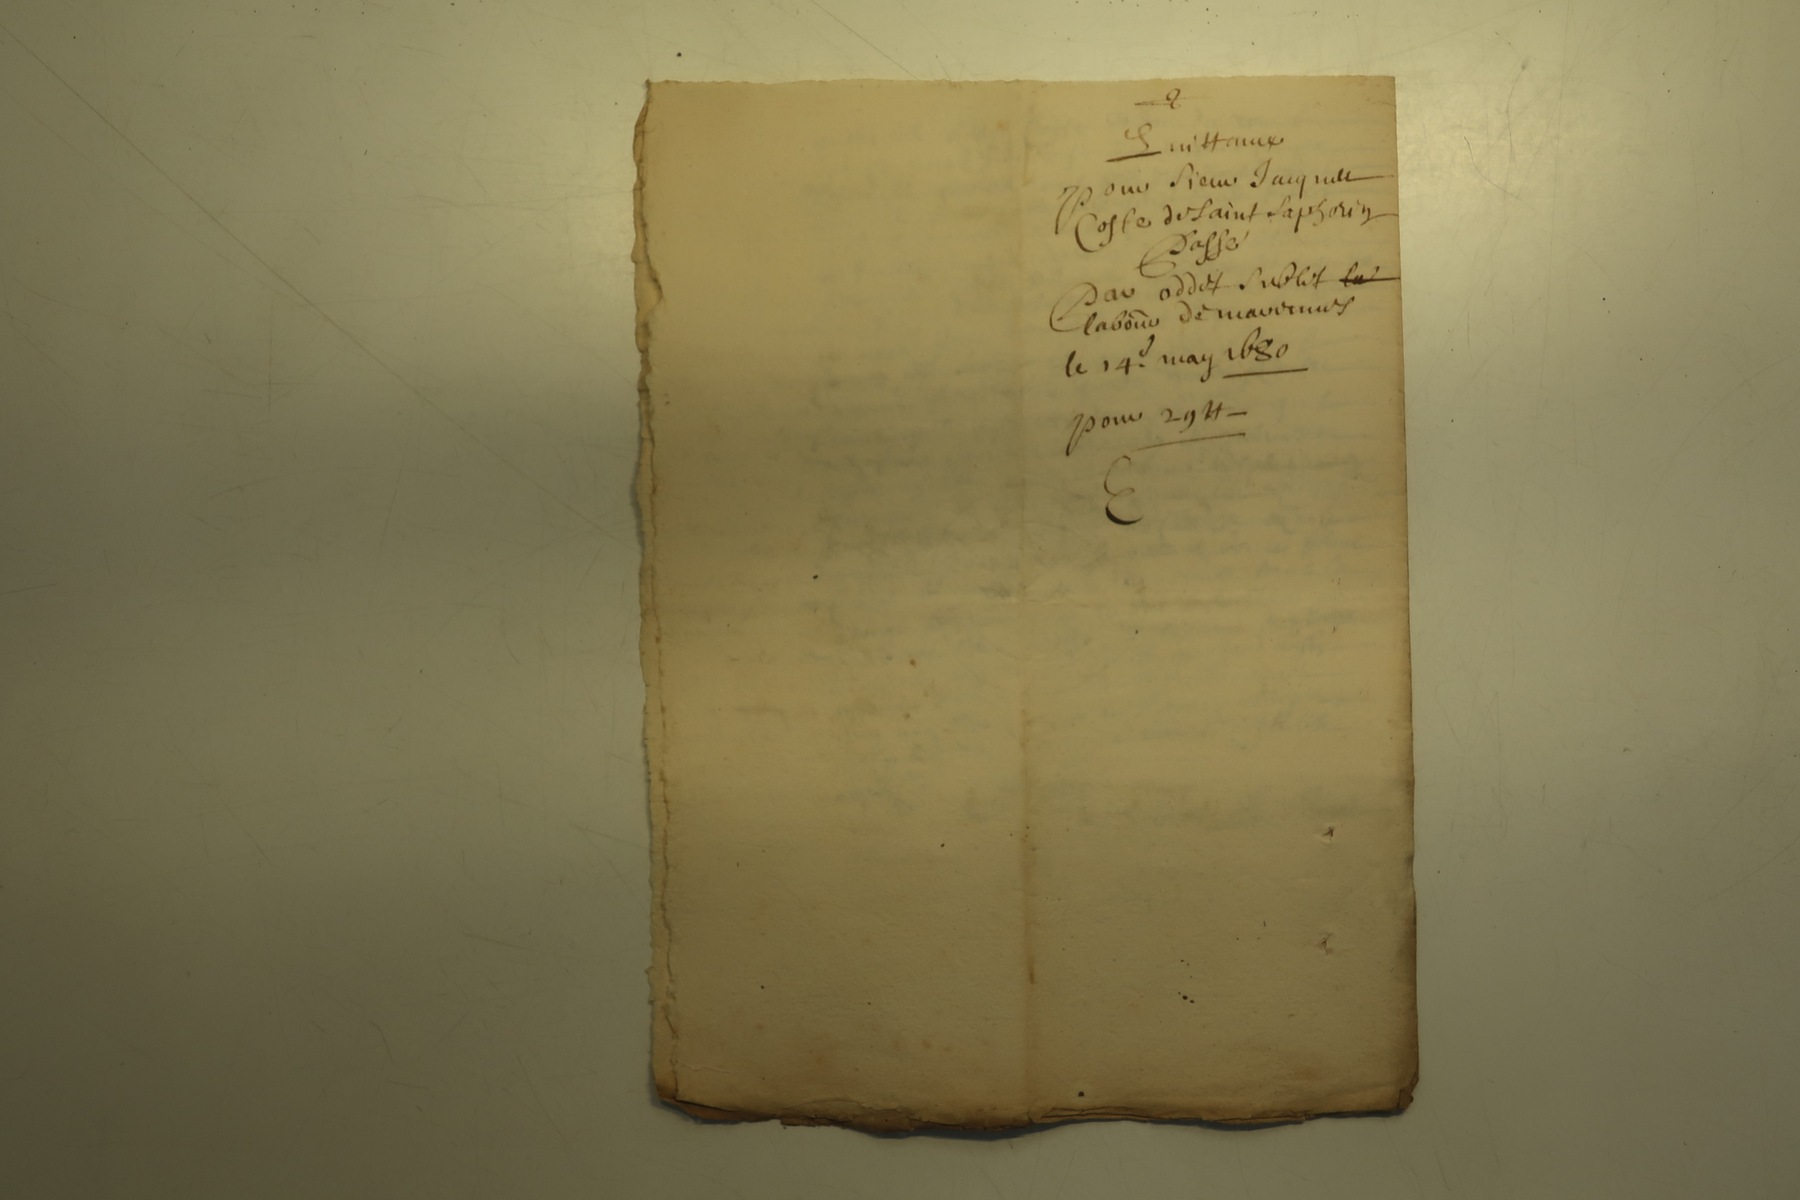 2
Quittance
Pour Sieur Jacques
Coste de Saint Saphorin
Passé
Par oddet Sublet
labour de marennes
le 14e may 1680
pour 29 ₶
E